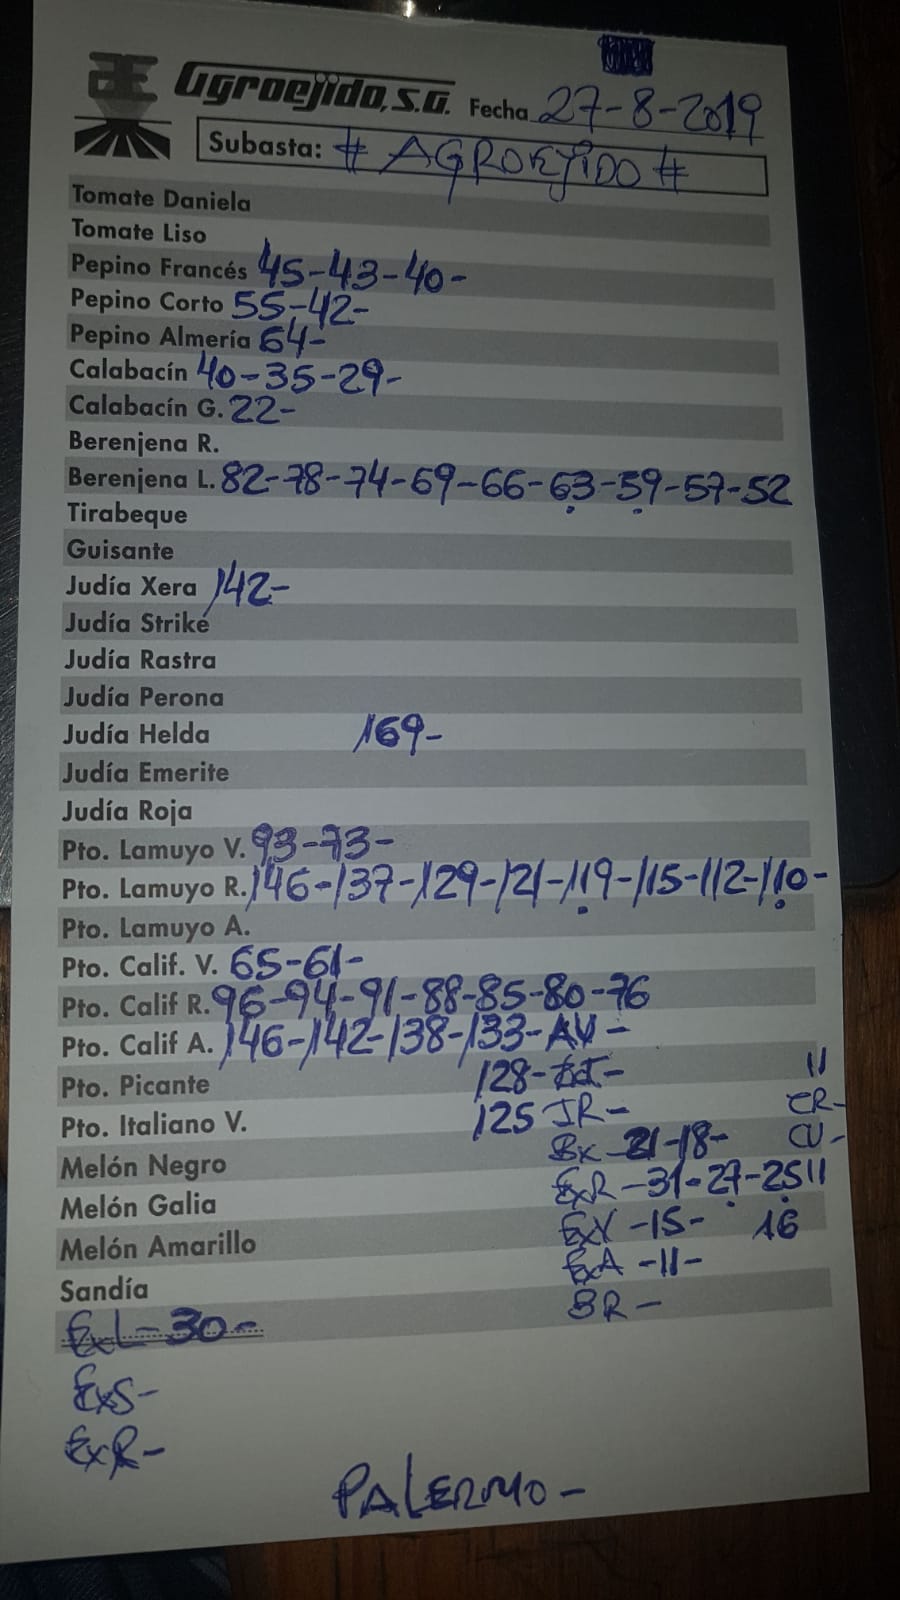 Agroejido, S.A. Fecha 27-8-2019
Subasta: # AGROEJIDO #
Tomate Daniela
Tomate Liso
Pepino Francés 45-43-40-
Pepino Corto 55-42-
Pepino Almería 64-
Calabacín 40-35-29-
Calabacín G. 22-
Berenjena R.
Berenjena L. 82-78-74-69-66-63-59-57-52
Tirabeque
Guisante
Judía Xera 142-
Judía Strike
Judía Rastra
Judía Perona
Judía Helda 169-
Judía Emerite
Judía Roja
Pto. Lamuyo V. 93-73-
Pto. Lamuyo R. 146-137-129-121-119-115-112-110-
Pto. Lamuyo A.
Pto. Calif. V. 65-61-
Pto. Calif R. 96-94-91-88-85-80-76
Pto. Calif A. 146-142-138-133-AV-
Pto. Picante 128- -  11
Pto. Italiano V. 125 IR- CR-
Bx -21-18- CU-
Melón Negro ExR -31-27-25 11
Melón Galia ExV -15- 16
Melón Amarillo ExA -11-
Sandía BR-
ExL-30-
ExS-
ExR-
PALERMO-